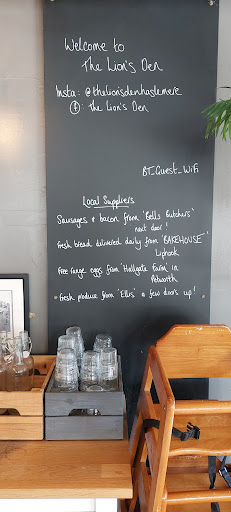 Welcome to
The Lion's Den
Insta: @thelionsdenhaslemere
f: The Lion's Den
BT_Guest_WiFi
Local Suppliers
Sausages & bacon from 'Bells Butchers'
next door!
Fresh bread delivered daily from 'BAKEHOUSE'
Liphook
Free range eggs from 'Hallgate Farm' in
Petworth
Fresh produce from 'Ellis' a few doors up!